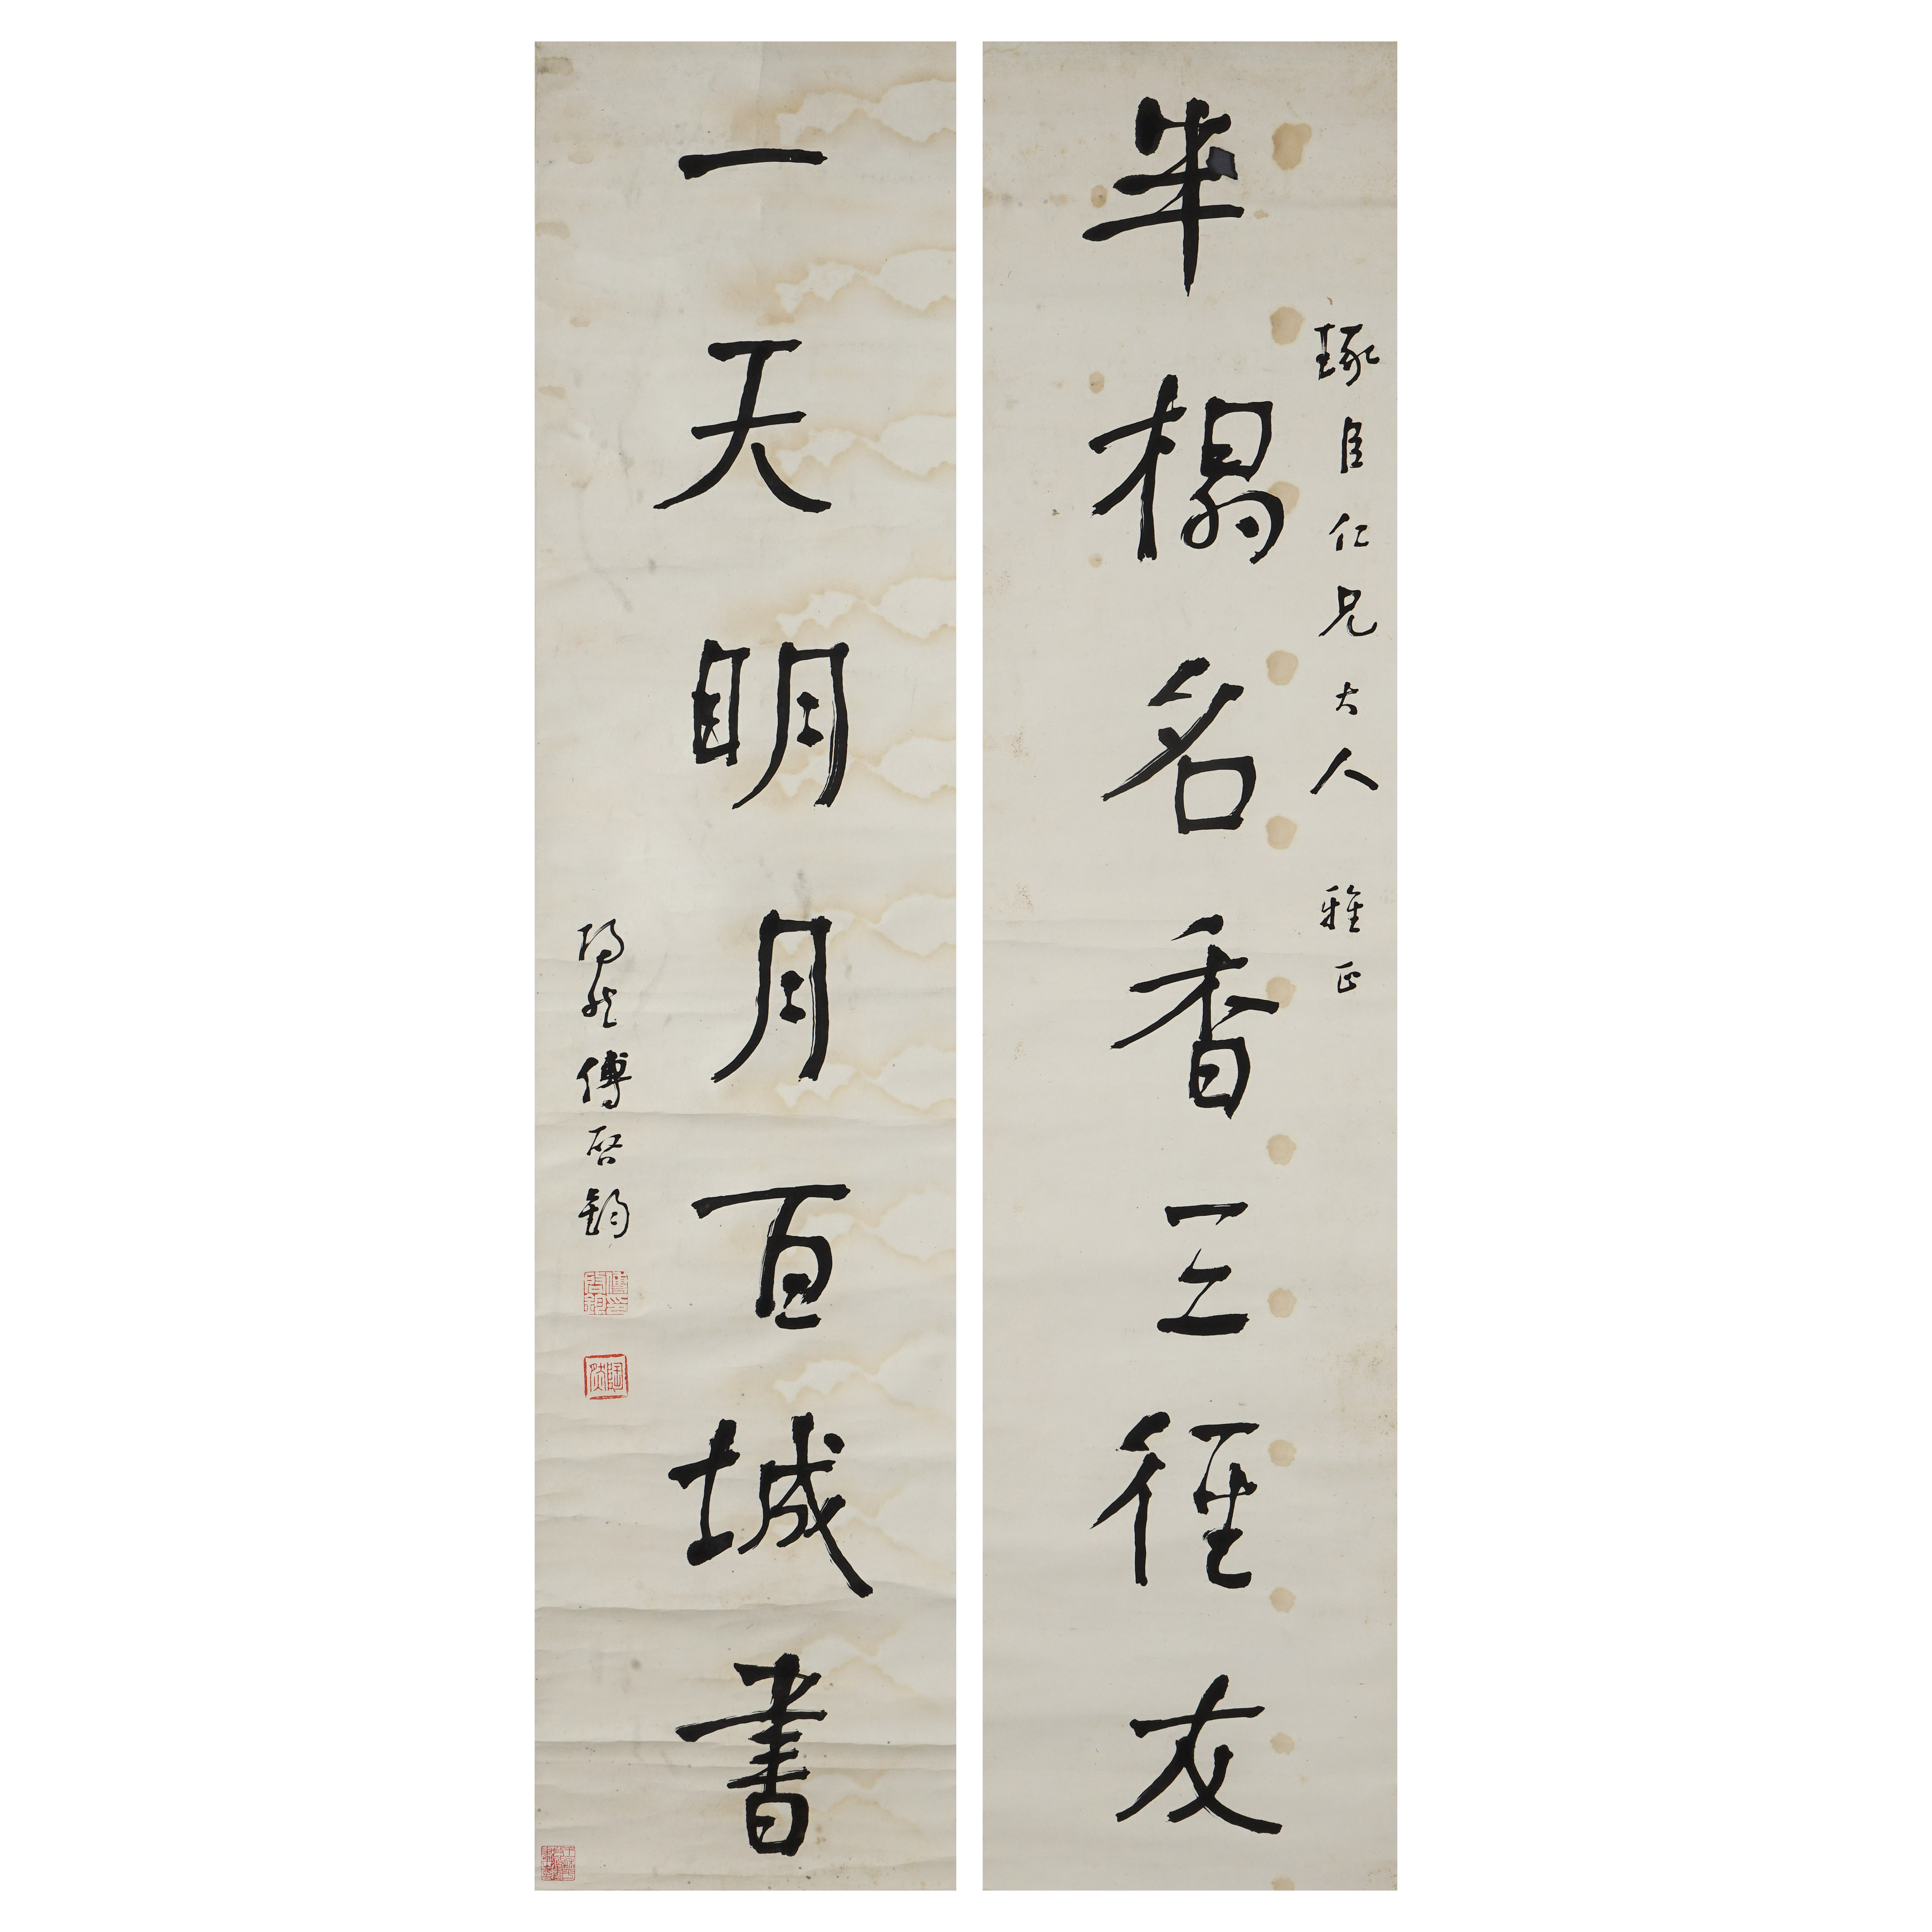 琢臣仁兄大人 雅正
半榻名香三徑友
一天明月百城書
傅啓鈞